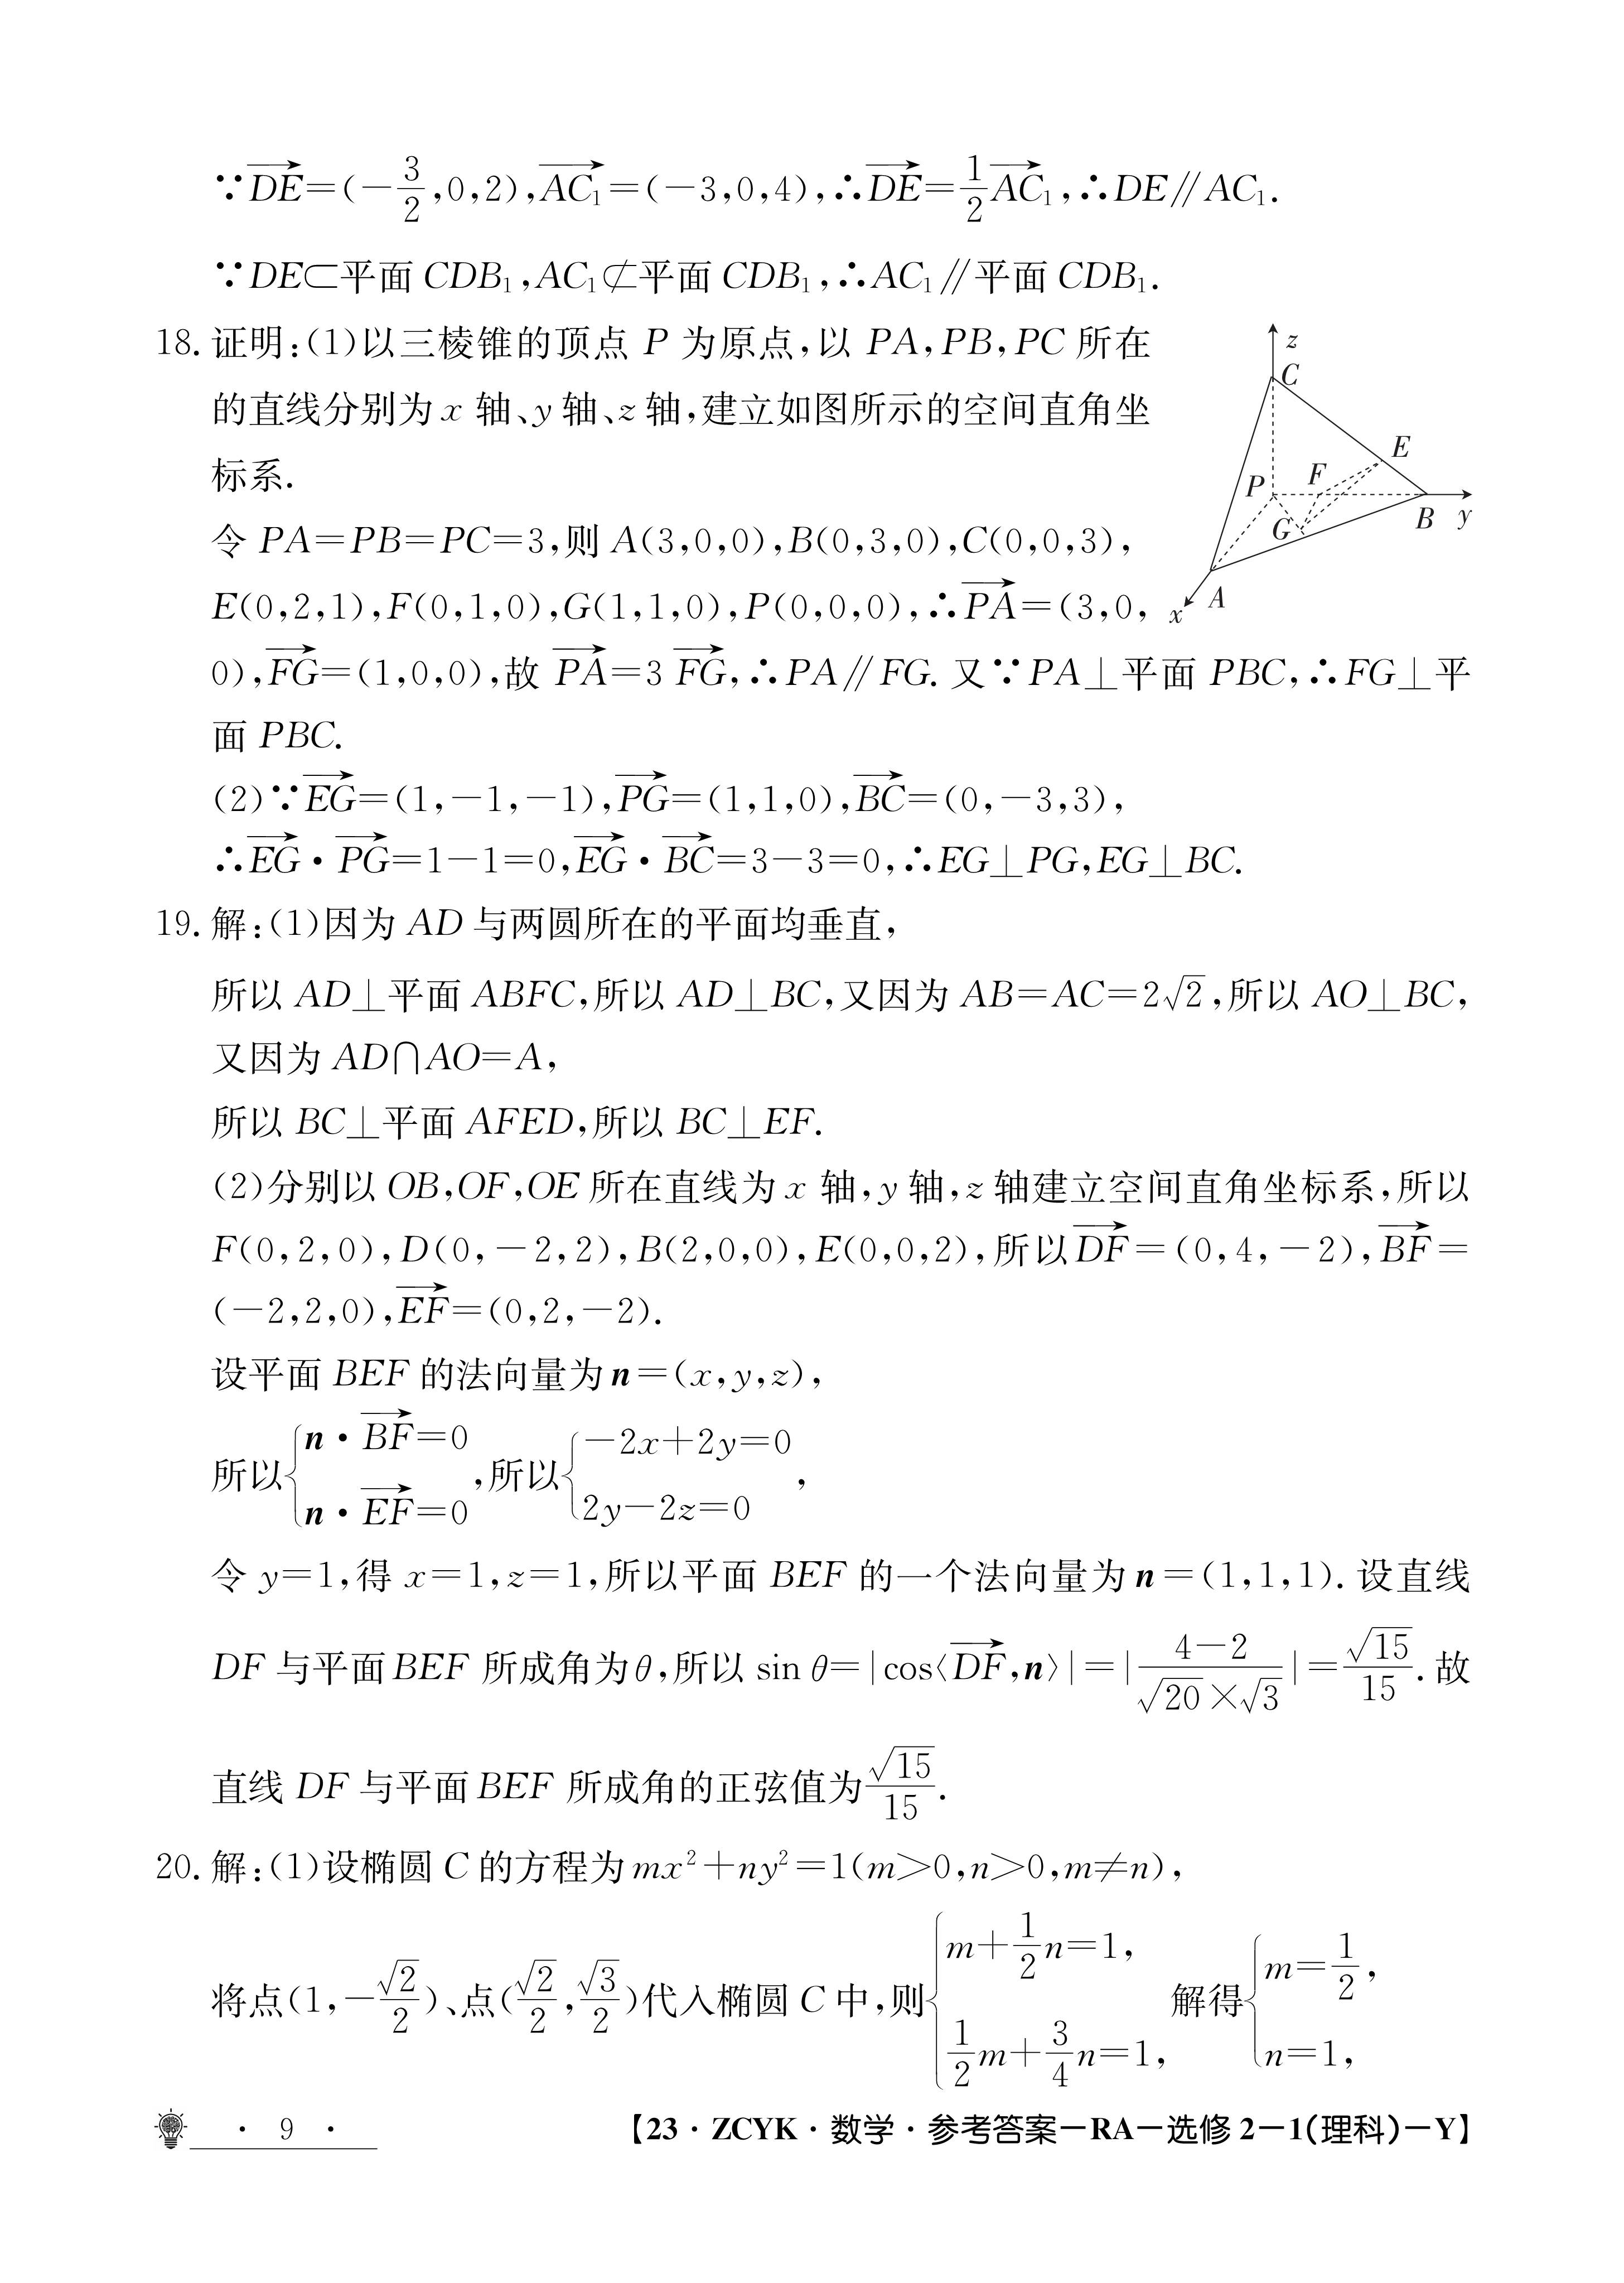 ∵$\overrightarrow{DE}=(-\frac{3}{2},0,2),\overrightarrow{AC_1}=(-3,0,4)$,∴$\overrightarrow{DE}=\frac{1}{2}\overrightarrow{AC_1}$,∴DE∥AC₁.
∵DE⊂平面 CDB₁,AC₁⊄平面 CDB₁,∴AC₁∥平面 CDB₁.
18. 证明:(1)以三棱锥的顶点 P 为原点,以 PA,PB,PC 所在
的直线分别为 x 轴、y 轴、z 轴,建立如图所示的空间直角坐
标系.
令 PA=PB=PC=3,则 A(3,0,0),B(0,3,0),C(0,0,3),
E(0,2,1),F(0,1,0),G(1,1,0),P(0,0,0),∴$\overrightarrow{PA}$=(3,0,
0),$\overrightarrow{FG}$=(1,0,0),故 $\overrightarrow{PA}$=3 $\overrightarrow{FG}$,∴PA∥FG. 又∵PA⊥平面 PBC,∴FG⊥平
面 PBC.
z
C
E
P
F
G
B
y
A
x
(2)∵$\overrightarrow{EG}$=(1,-1,-1),$\overrightarrow{PG}$=(1,1,0),$\overrightarrow{BC}$=(0,-3,3),
∴$\overrightarrow{EG}$·$\overrightarrow{PG}$=1-1=0,$\overrightarrow{EG}$·$\overrightarrow{BC}$=3-3=0,∴EG⊥PG,EG⊥BC.
19. 解:(1)因为 AD 与两圆所在的平面均垂直,
所以 AD⊥平面 ABFC,所以 AD⊥BC,又因为 AB=AC=2$\sqrt{2}$,所以 AO⊥BC,
又因为 AD∩AO=A,
所以 BC⊥平面 AFED,所以 BC⊥EF.
(2)分别以 OB,OF,OE 所在直线为 x 轴,y 轴,z 轴建立空间直角坐标系,所以
F(0,2,0),D(0,-2,2),B(2,0,0),E(0,0,2),所以$\overrightarrow{DF}$=(0,4,-2),$\overrightarrow{BF}$=
(-2,2,0),$\overrightarrow{EF}$=(0,2,-2).
设平面 BEF 的法向量为 n=(x,y,z),
所以$\begin{cases}n·\overrightarrow{BF}=0\\n·\overrightarrow{EF}=0\end{cases}$,所以$\begin{cases}-2x+2y=0\\2y-2z=0\end{cases}$,
令 y=1,得 x=1,z=1,所以平面 BEF 的一个法向量为 n=(1,1,1). 设直线
DF 与平面 BEF 所成角为 θ,所以 sin θ=|cos⟨$\overrightarrow{DF}$,n⟩|=|$\frac{4-2}{\sqrt{20}×\sqrt{3}}$|=$\frac{\sqrt{15}}{15}$. 故
直线 DF 与平面 BEF 所成角的正弦值为$\frac{\sqrt{15}}{15}$.
20. 解:(1)设椭圆 C 的方程为 mx²+ny²=1(m>0,n>0,m≠n),
将点(1,-$\frac{\sqrt{2}}{2}$)、点($\frac{\sqrt{2}}{2}$,$\frac{\sqrt{3}}{2}$)代入椭圆 C 中,则$\begin{cases}m+\frac{1}{2}n=1,\\\frac{1}{2}m+\frac{3}{4}n=1,\end{cases}$ 解得$\begin{cases}m=\frac{1}{2},\\n=1,\end{cases}$
· 9 · 【23·ZCYK·数学·参考答案-RA-选修 2-1(理科)-Y】